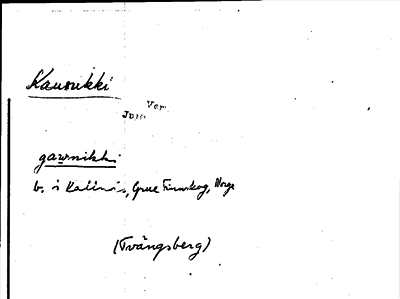 Kausikki
Ver
Jam
gawnikki
b. i Kalin, Grue Finnskog, Norge
(Tvängsberg)